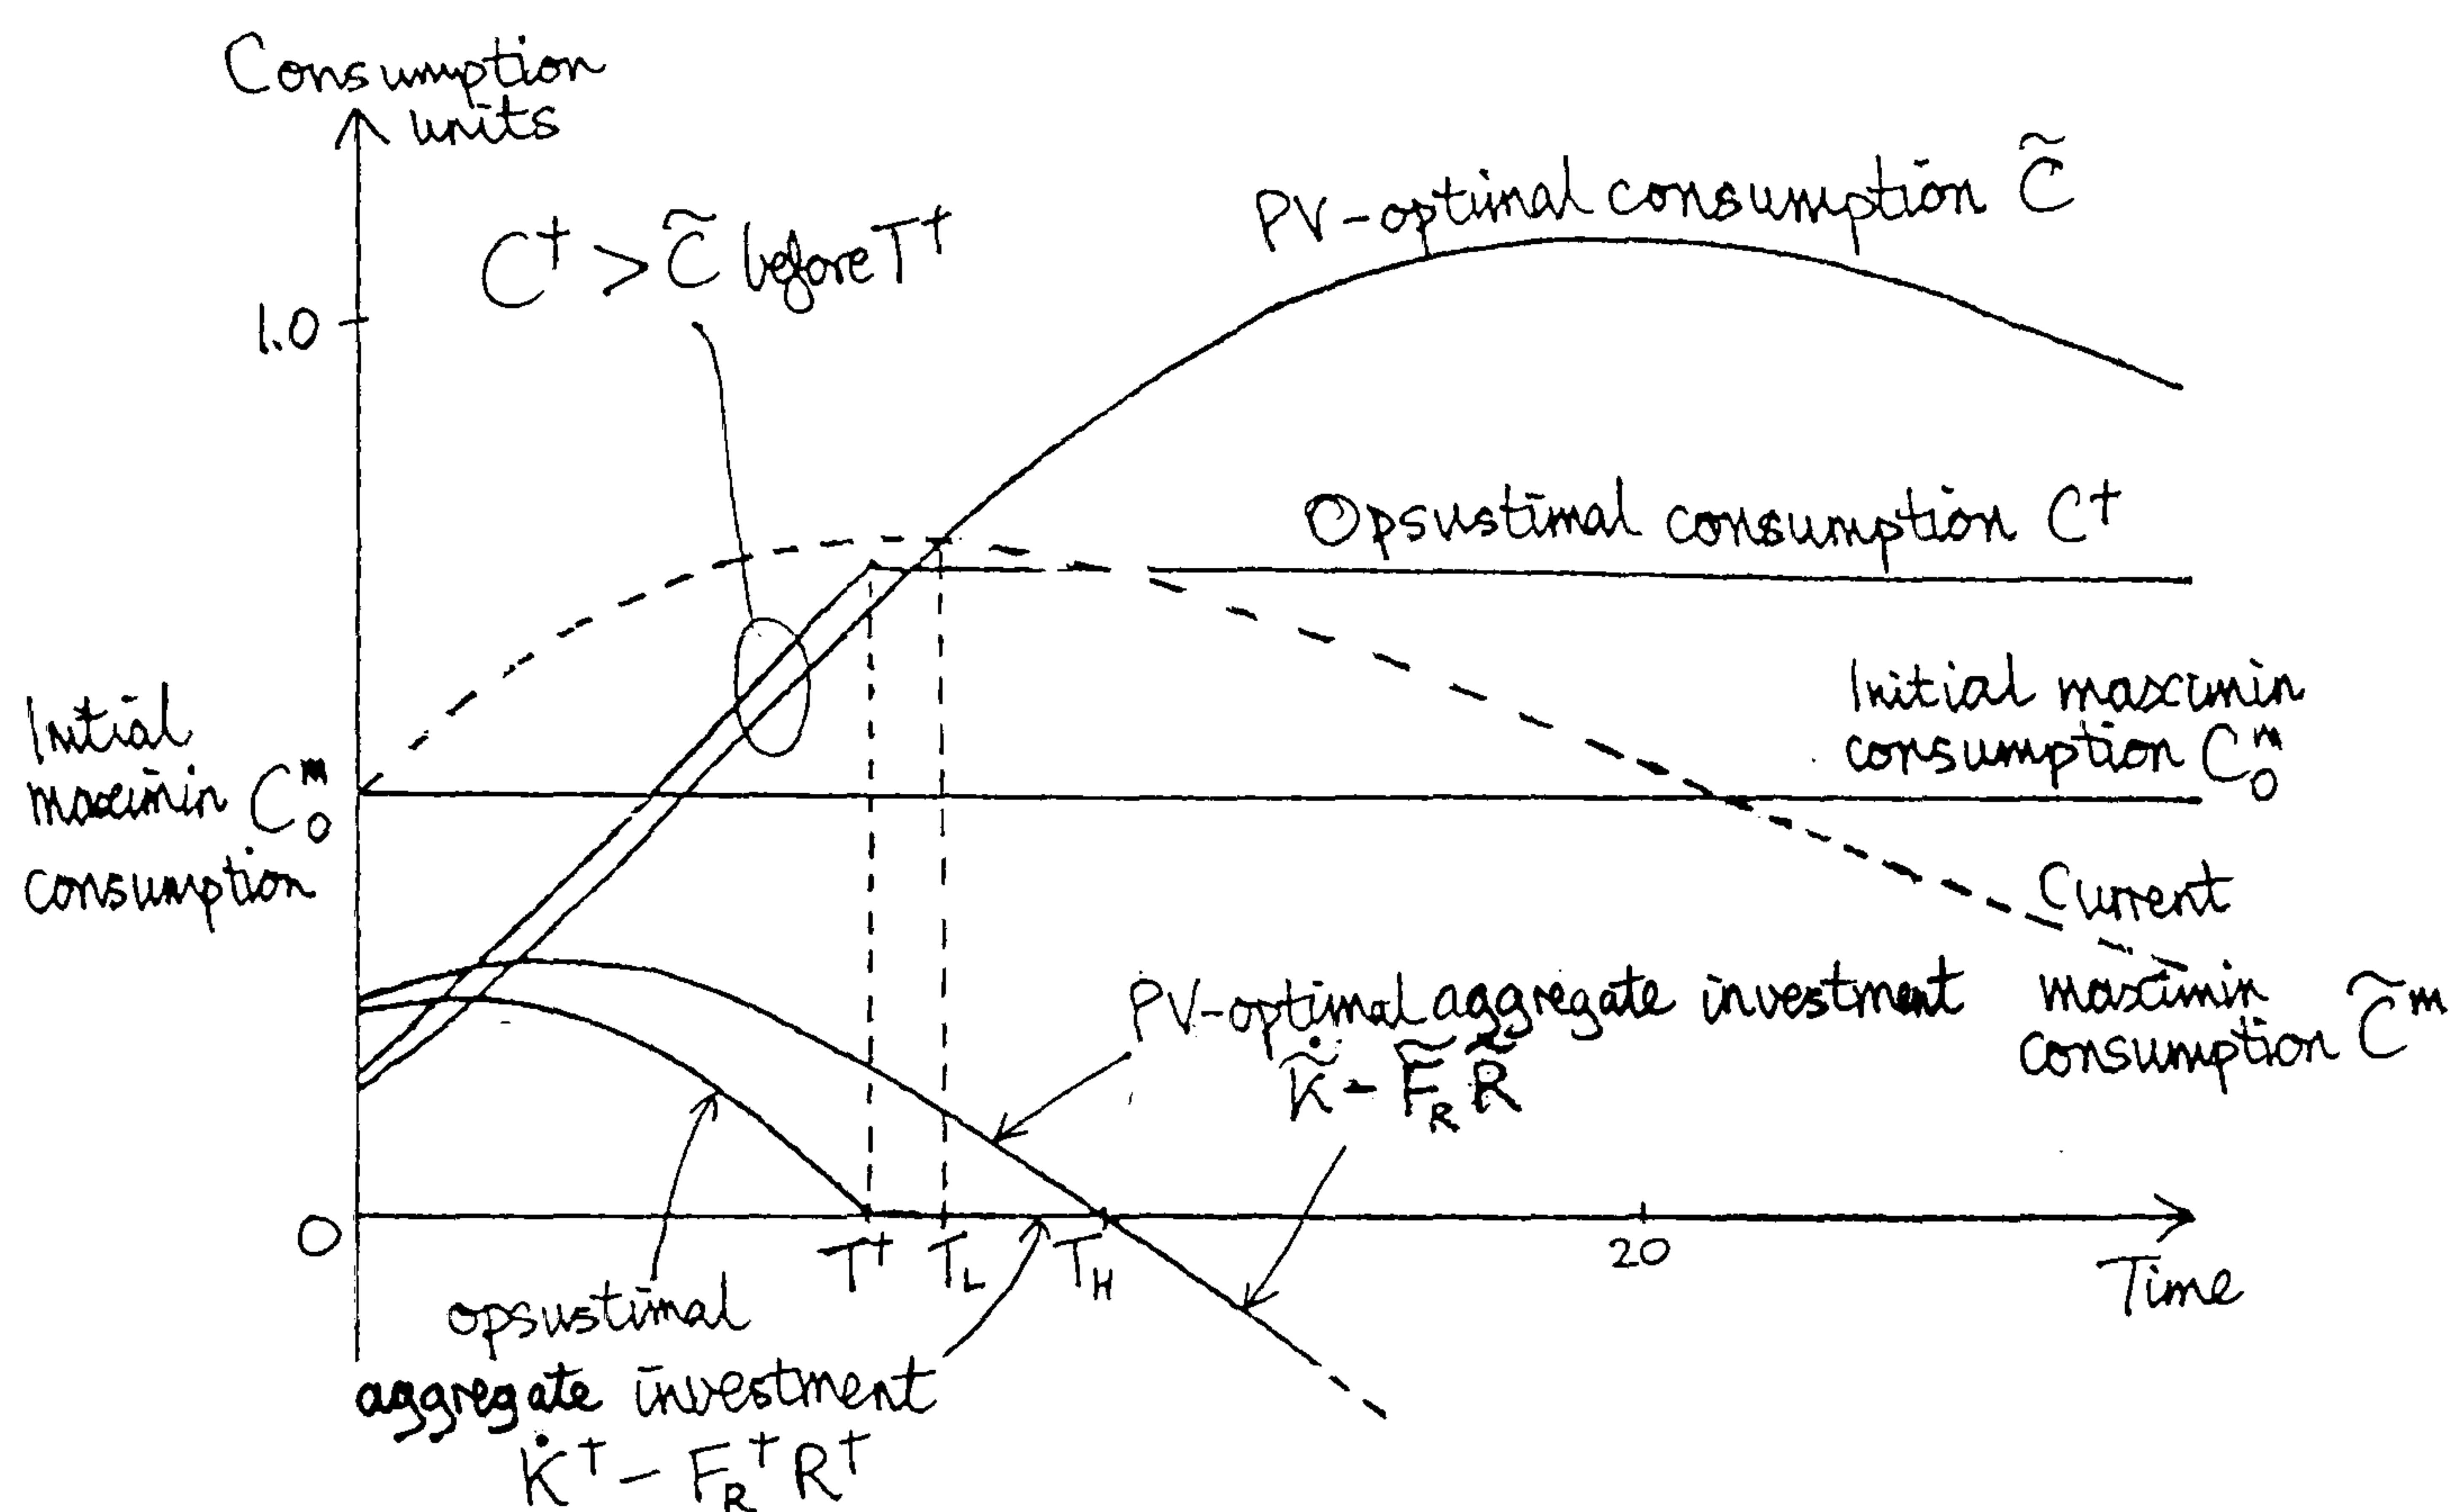 Consumption
units
C† > C̃ before T†
PV-optimal consumption C̃
1.0
Opsustimal consumption C†
Initial maximin
consumption C₀ᵐ
Initial
maximin C₀ᵐ
consumption
Current
maximin
consumption C̃ᵐ
PV-optimal aggregate investment
K̃̇ - F̃_R R̃
0
T†
T_L
T_H
20
Time
opsustimal
aggregate investment
K̇† - F_R† R†